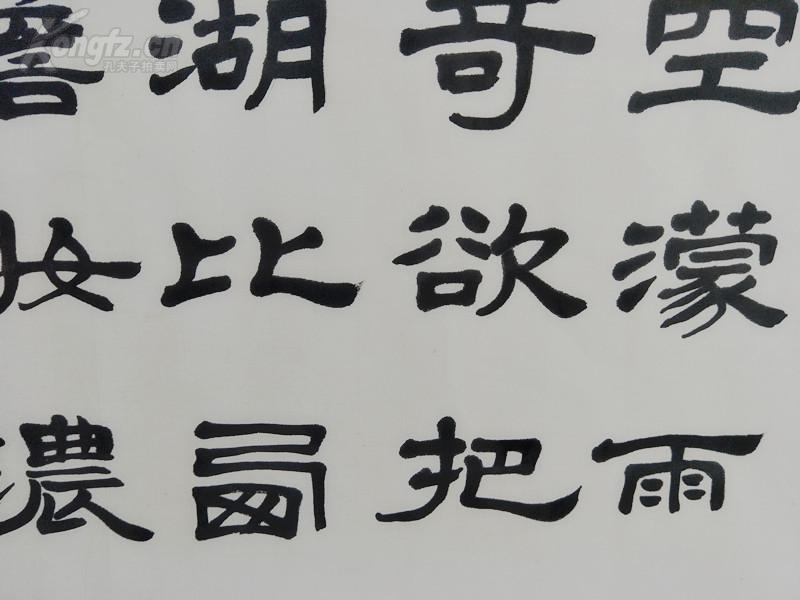 空濛雨
奇欲把
湖比西
妝濃
Kongfz.cn
孔夫子拍卖网